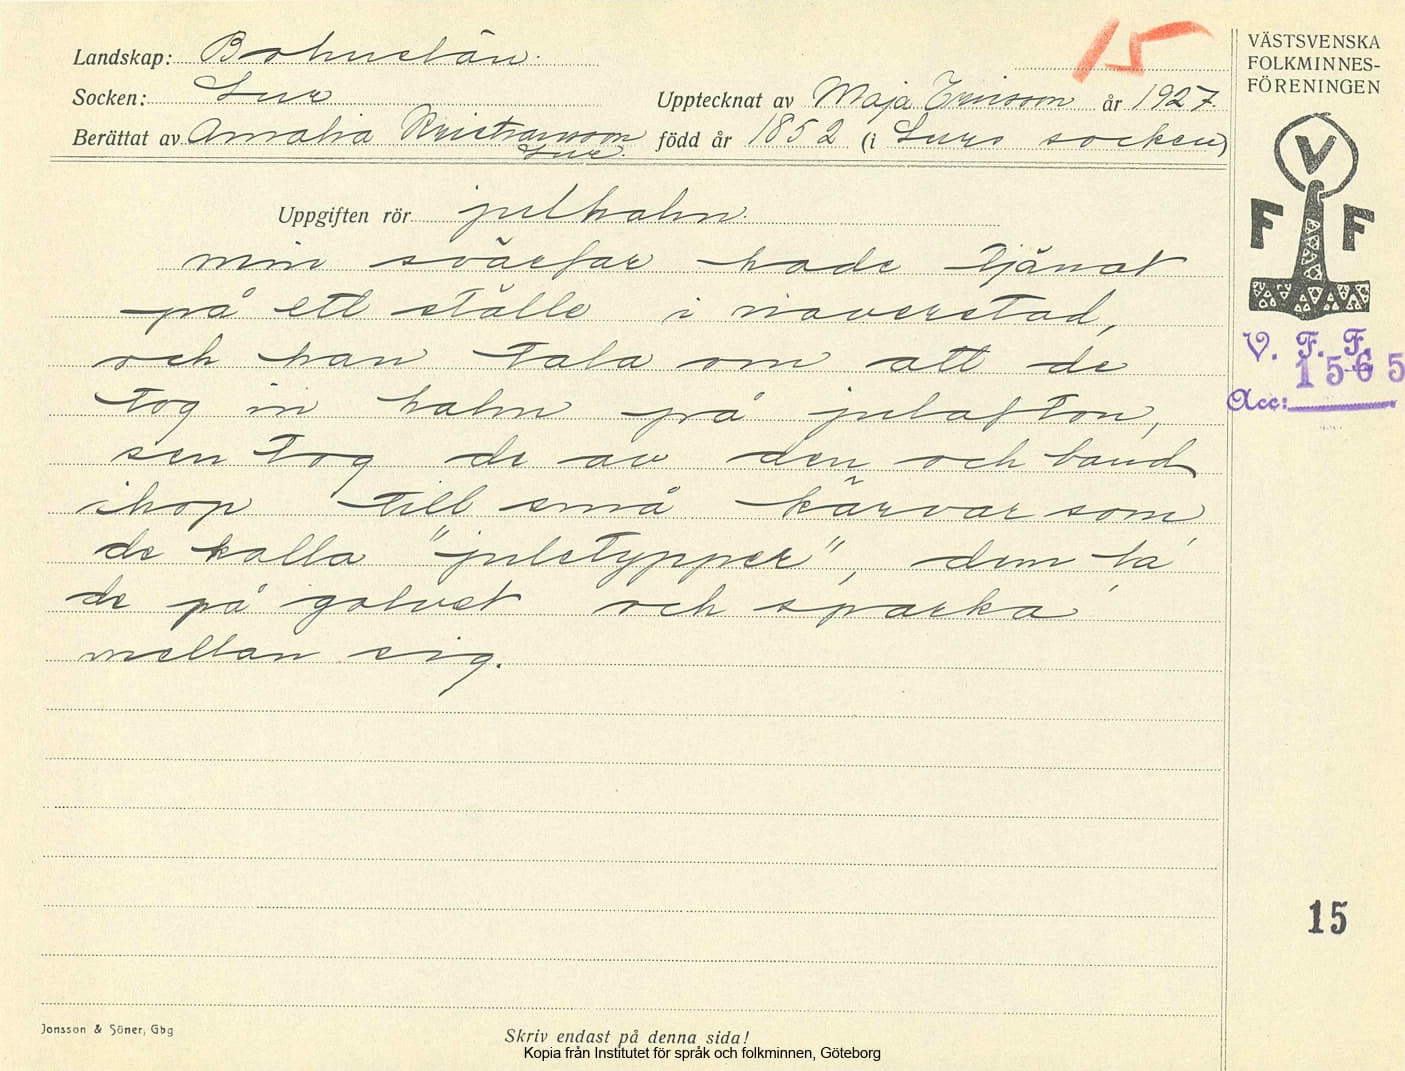 15
Landskap: Bohuslän.
Socken: Lur
Upptecknat av Maja Ericson år 1927
Berättat av Amalia Kristianson
Lur.
född år 1852 (i Lurs socken)
Uppgiften rör julhalm.
min svärfar hade tjänat
på ett ställe i naverstad,
och han tala om att de
tog in halm på julafton,
sen tog de av den och band
ihop till små kärvar som
de kalla "julstypper", dem la'
de på golvet och sparka'
mellan sig.
VÄSTSVENSKA
FOLKMINNES-
FÖRENINGEN
V
F F
V. F. F.
1565
Acc:
15
Jonsson & Söner, Gbg
Skriv endast på denna sida!
Kopia från Institutet för språk och folkminnen, Göteborg